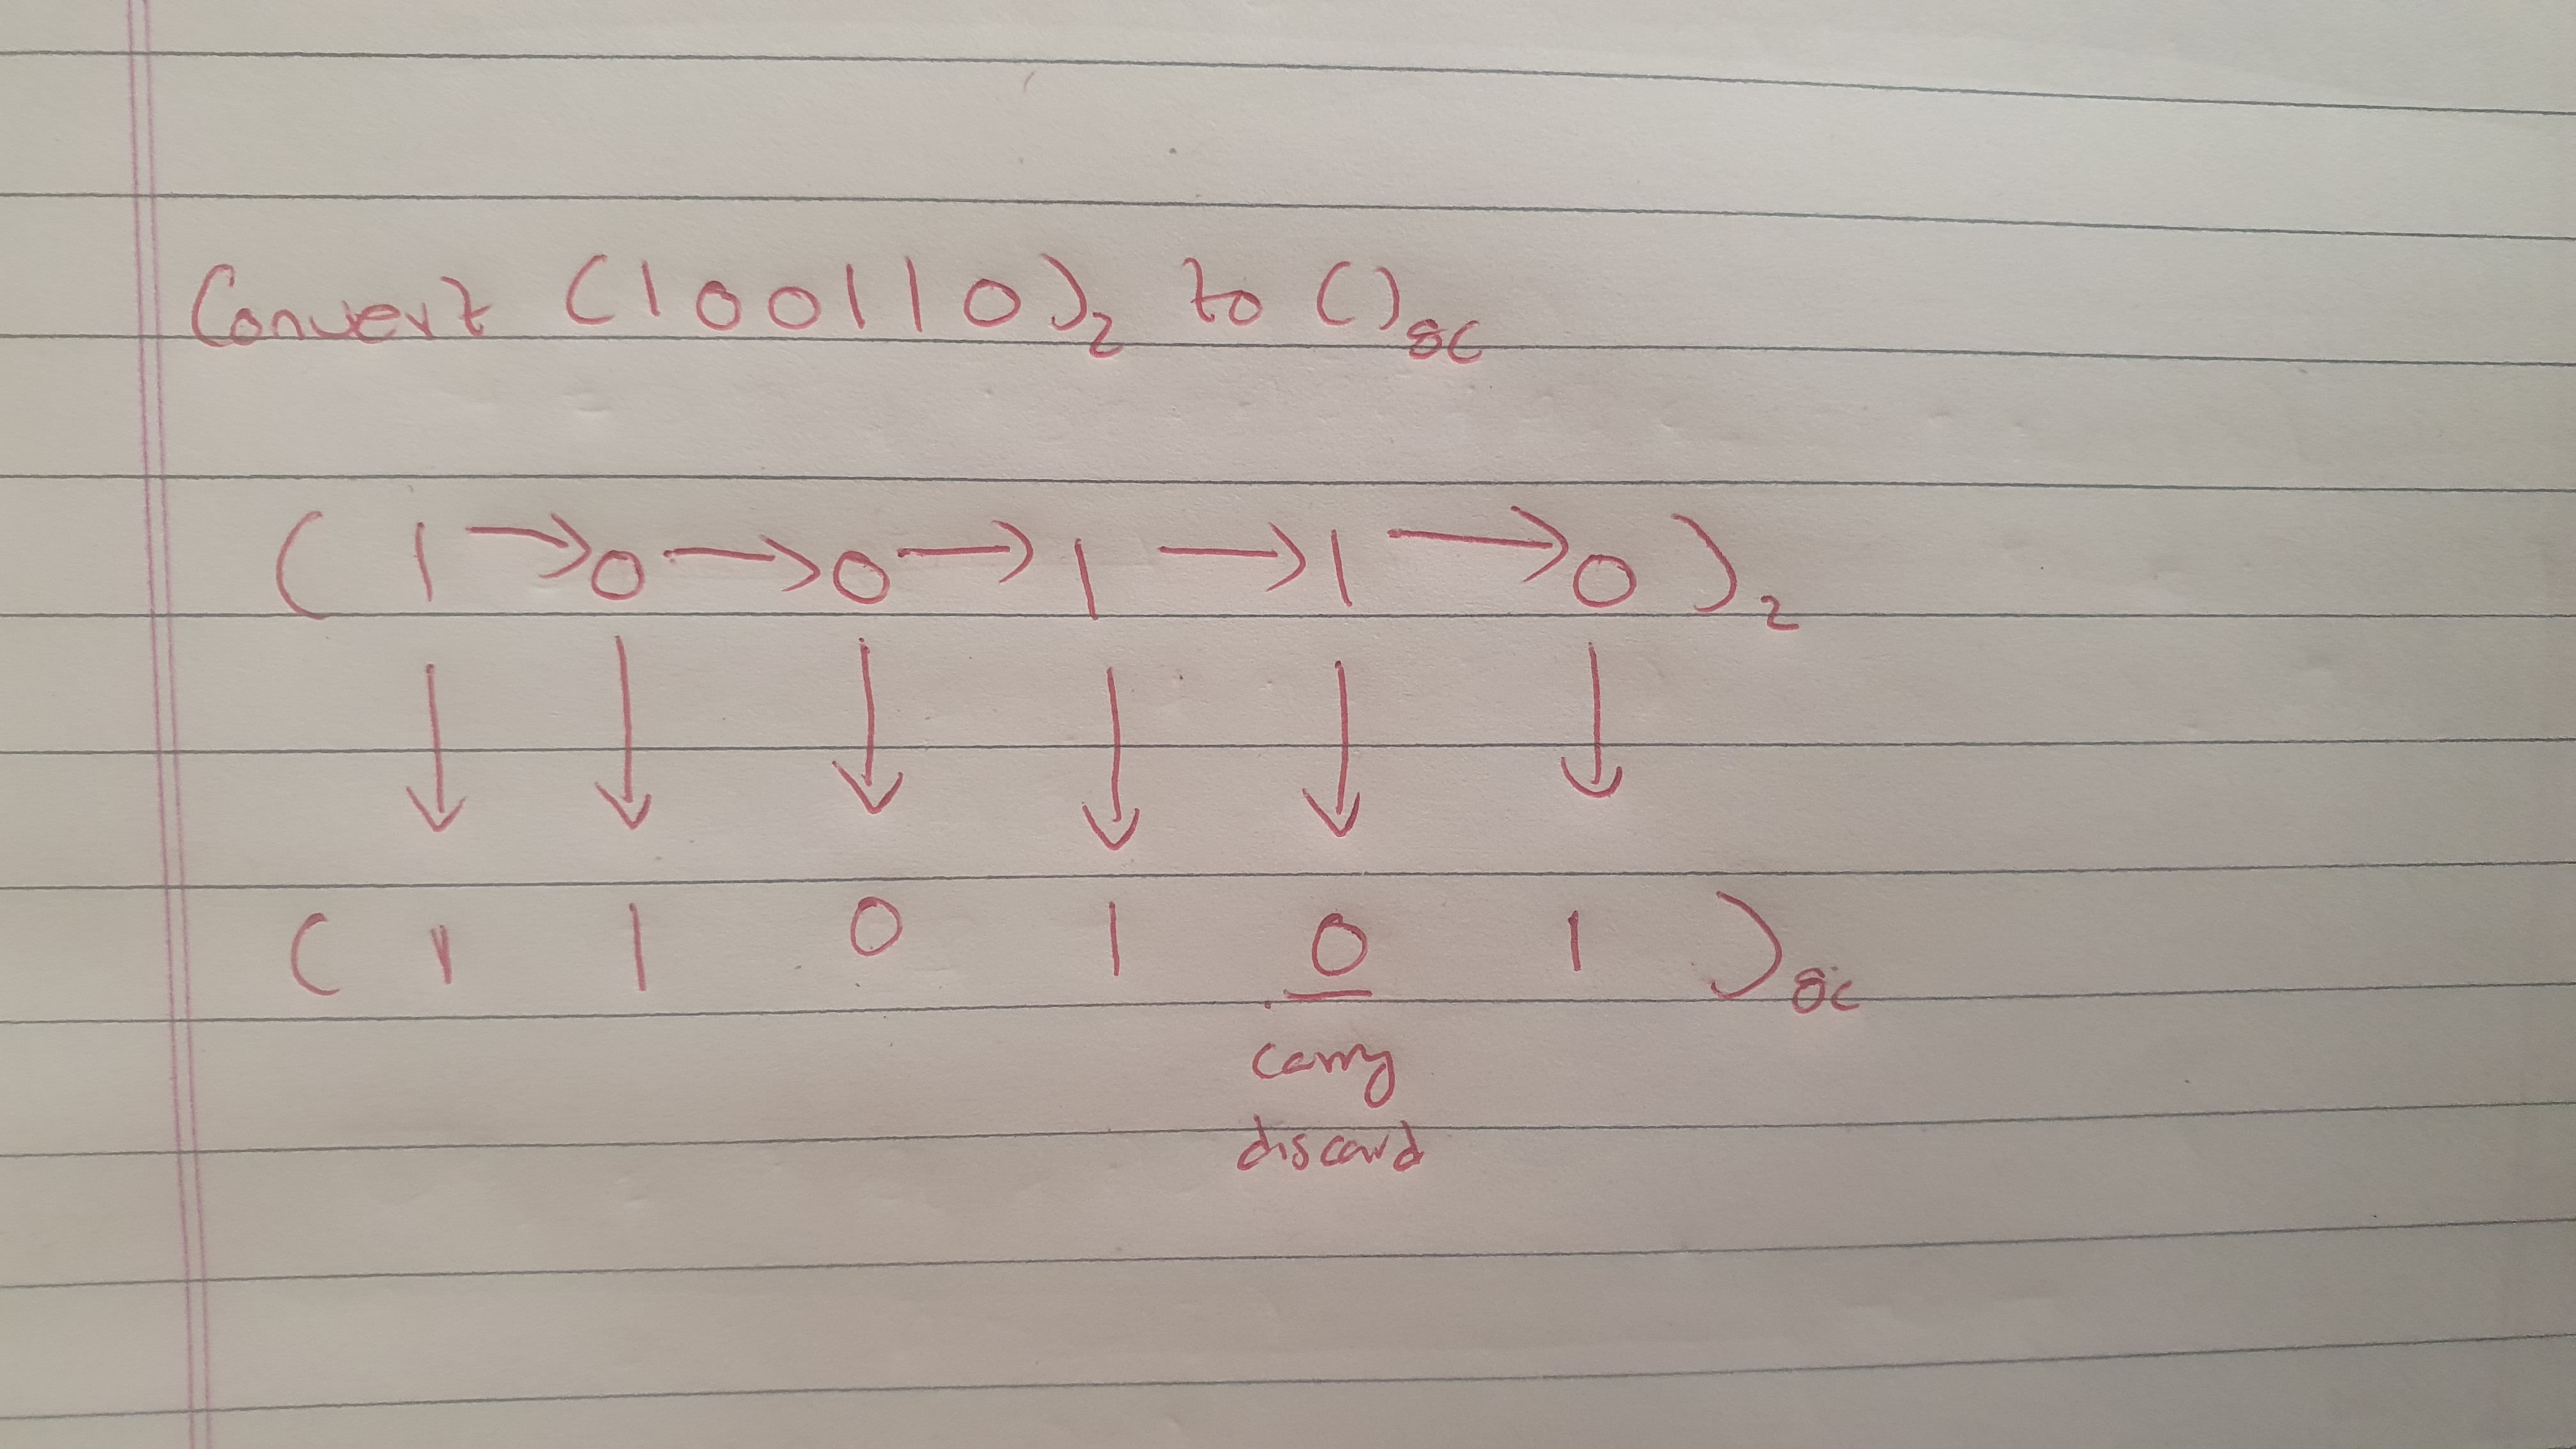 Convert (100110)₂ to ()GC
(1 → 0 → 0 → 1 → 1 → 0)₂
↓ ↓ ↓ ↓ ↓ ↓
(1 1 0 1 0 1)GC
carry
discard